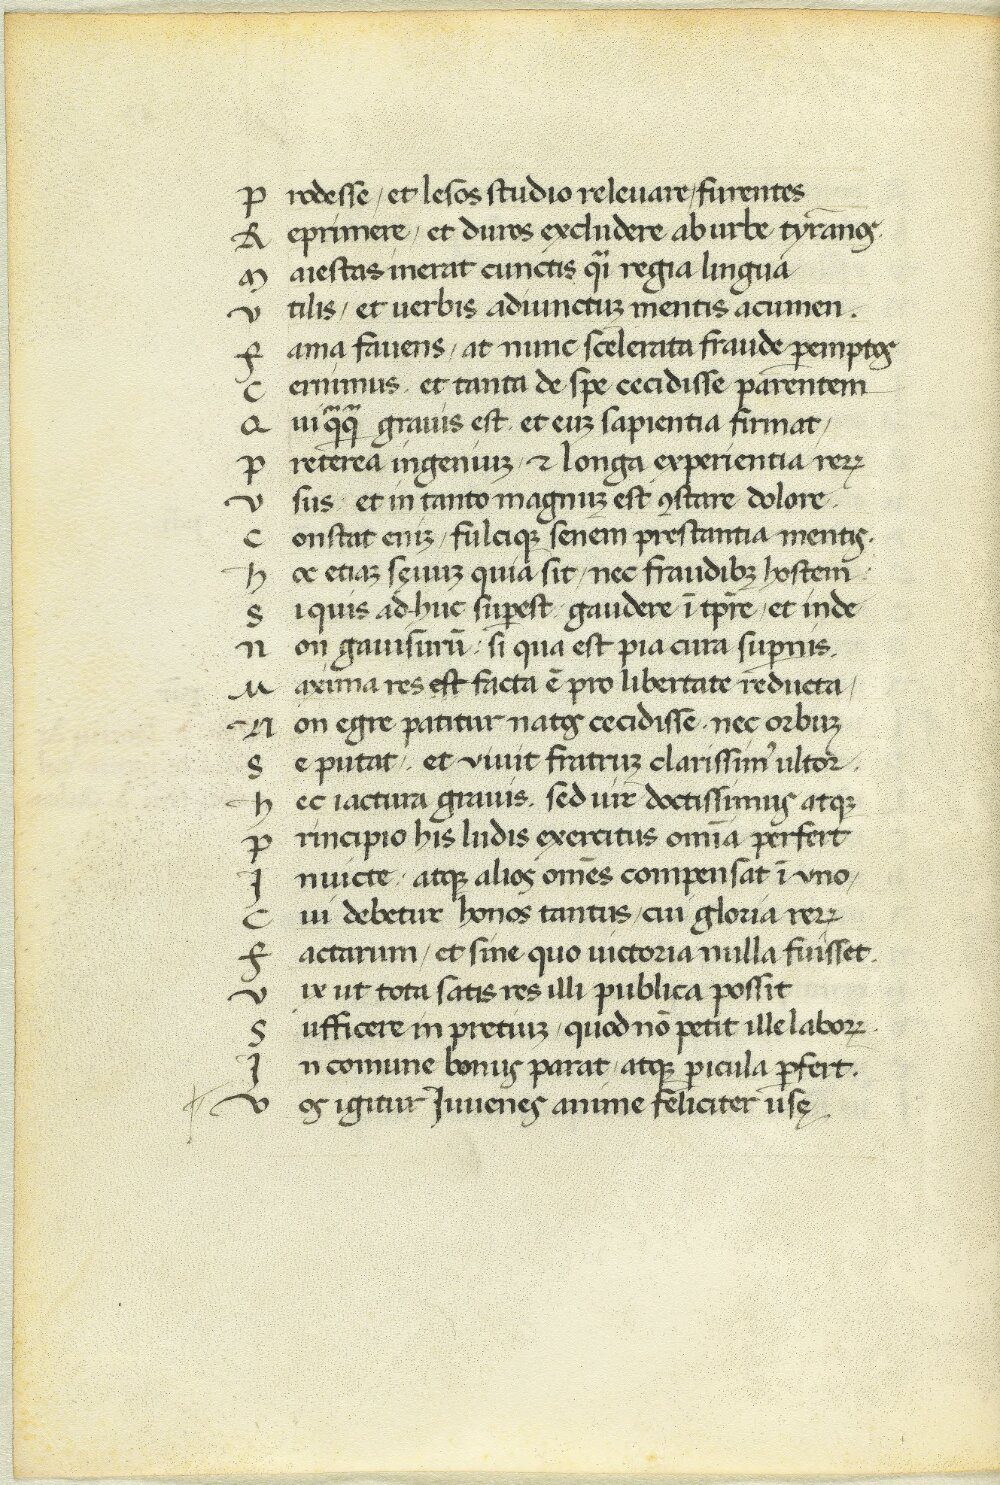 P rodesse / et lesos studio releuare / furentes
R eprimere / et duros excludere ab urbe tyrānos.
M aiestas inerat cunctis qͣi regia lingua
V tilis / et uerbis adiunctuꝫ mentis acumen .
F ama fauens / at nunc scelerata fraude ꝑemptos
C ernimus . et tanta de spe cecidisse parentem
Q ui qͣqͣ grauis est . et eiꝫ sapientia firmat /
P reterea ingeniuꝫ / ⁊ longa experientia reꝝ
V sus . et in tanto magnuꝫ est ꝯstare dolore .
C onstat eniꝫ / fulcitqꝫ senem prestantia mentis .
H oc etiaꝫ sęuuꝫ quia sit / nec fraudibꝫ hostem :
S iquis adhuc suꝑest . gaudere ī tp̄re / et inde
N on gauisurū : si qua est pia cura suꝑnis .
M axima res est facta ē pro libertate reducta /
N on egre patitur natos cecidisse . nec orbuꝫ
S e putat . et viuit fratruꝫ clarissim⁹ ultor .
H ec iactura grauis . sed uir doctissimus atqꝫ
P rincipio his ludis exercitus omīa perfert
I nuicte . atqꝫ alios omēs compensat ī vno /
C ui debetur honos tantus / cui gloria reꝝ
F actarum / et sine quo uictoria nulla fuisset .
V ix ut tota satis res illi publica possit
S ufficere in pretiuꝫ / quod nō petit ille laboꝝ .
I n comune bonus parat / atqꝫ ꝑicula ꝑfert .
V os igitur Iuuenes anime feliciter